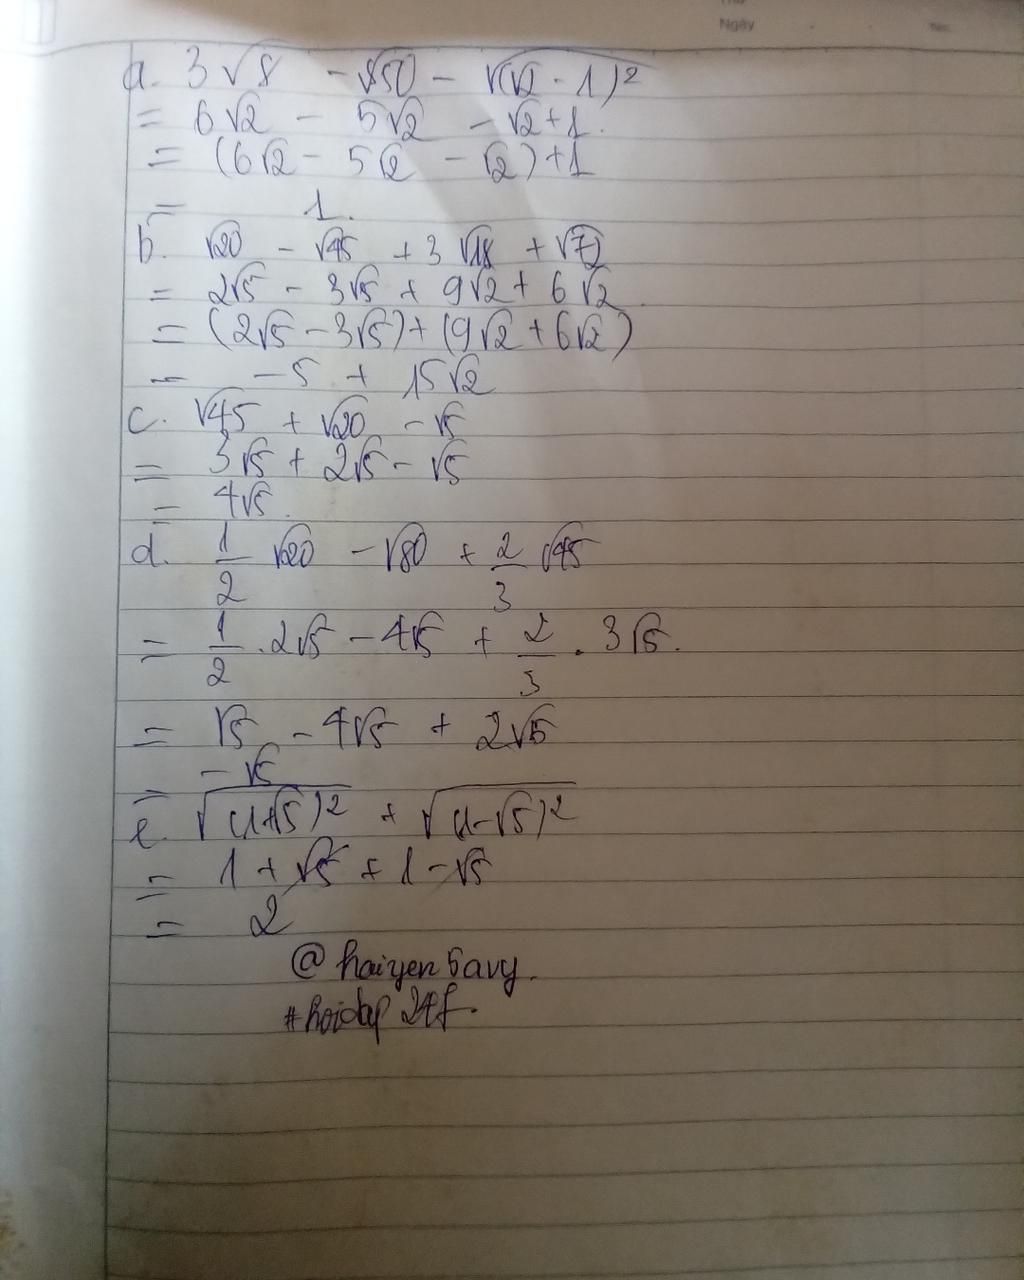 Ngày
a. 3√8 - √50 - √(√2 - 1)²
= 6√2 - 5√2 - √2+1.
= (6√2 - 5√2 - √2)+1
= 1.
b. √20 - √45 + 3√18 + √72
= 2√5 - 3√5 + 9√2 + 6√2.
= (2√5 - 3√5)+(9√2+6√2)
= -5 + 15√2
c. √45 + √20 - √5
= 3√5 + 2√5 - √5
= 4√5.
d. 1/2 √20 - √80 + 2/3 √45
= 1/2 . 2√5 - 4√5 + 2/3 . 3√5.
= √5 - 4√5 + 2√5
= -√5
e. √(1+√5)² + √(1-√5)²
= 1 + √5 + 1 - √5
= 2
@haiyen5avy.
#hoidap24f.